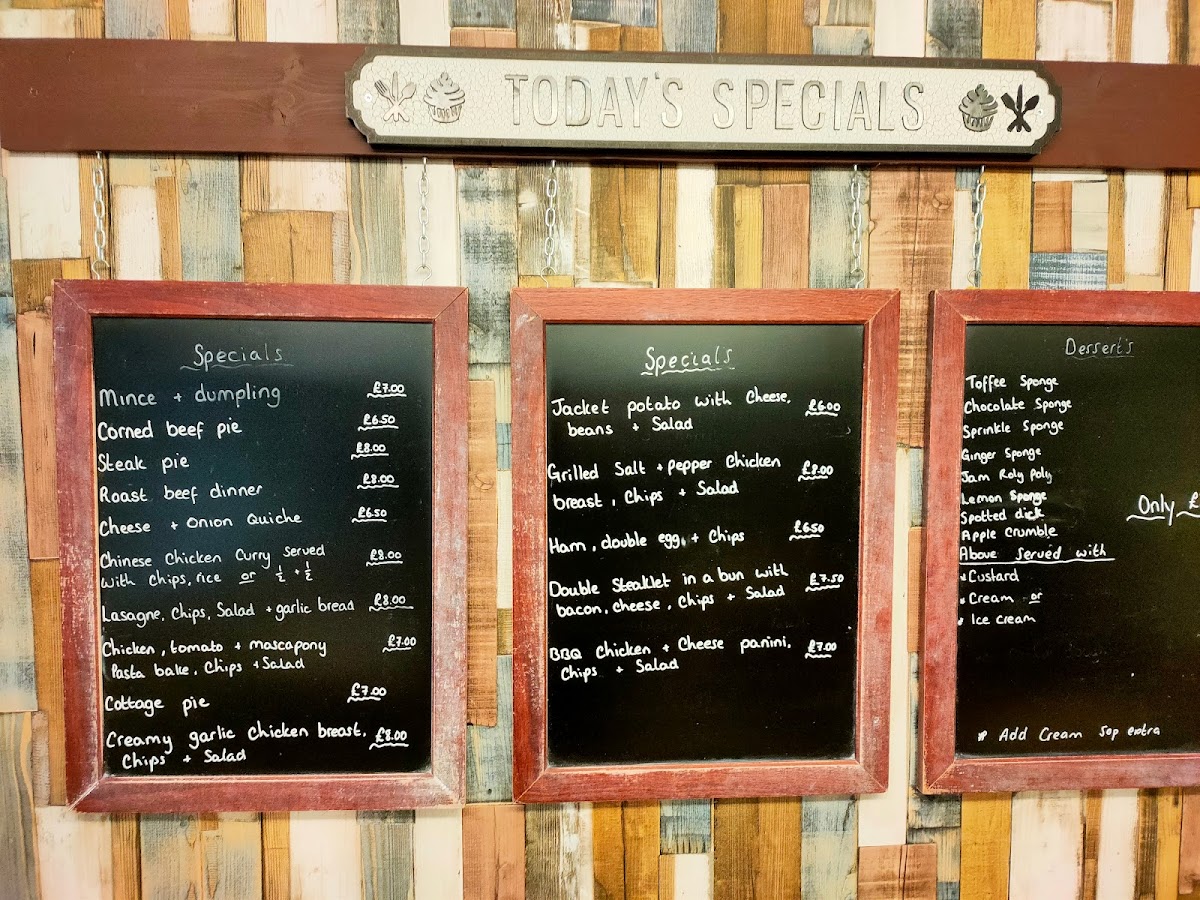 TODAY'S SPECIALS
Specials
Mince + dumpling £7.00
Corned beef pie £6.50
Steak pie £8.00
Roast beef dinner £8.00
Cheese + Onion Quiche £6.50
Chinese Chicken Curry Served £8.00
with chips, rice or ½ + ½
Lasagne, Chips, Salad + garlic bread £8.00
Chicken, tomato + mascapony £7.00
Pasta bake, Chips + Salad
Cottage pie £7.00
Creamy garlic chicken breast, £8.00
Chips + Salad
Specials
Jacket potato with Cheese, £6.00
beans + Salad
Grilled Salt + pepper Chicken £8.00
breast, Chips + Salad
Ham, double egg, + Chips £6.50
Double Steaklet in a bun with £7.50
bacon, cheese, Chips + Salad
BBQ Chicken + Cheese panini, £7.00
Chips + Salad
Dessert's
Toffee Sponge
Chocolate Sponge
Sprinkle Sponge
Ginger Sponge
Jam Roly Poly
Lemon Sponge
Spotted dick
Apple Crumble
Only £
Above Served with
* Custard
* Cream or
* Ice cream
* Add Cream 50p extra